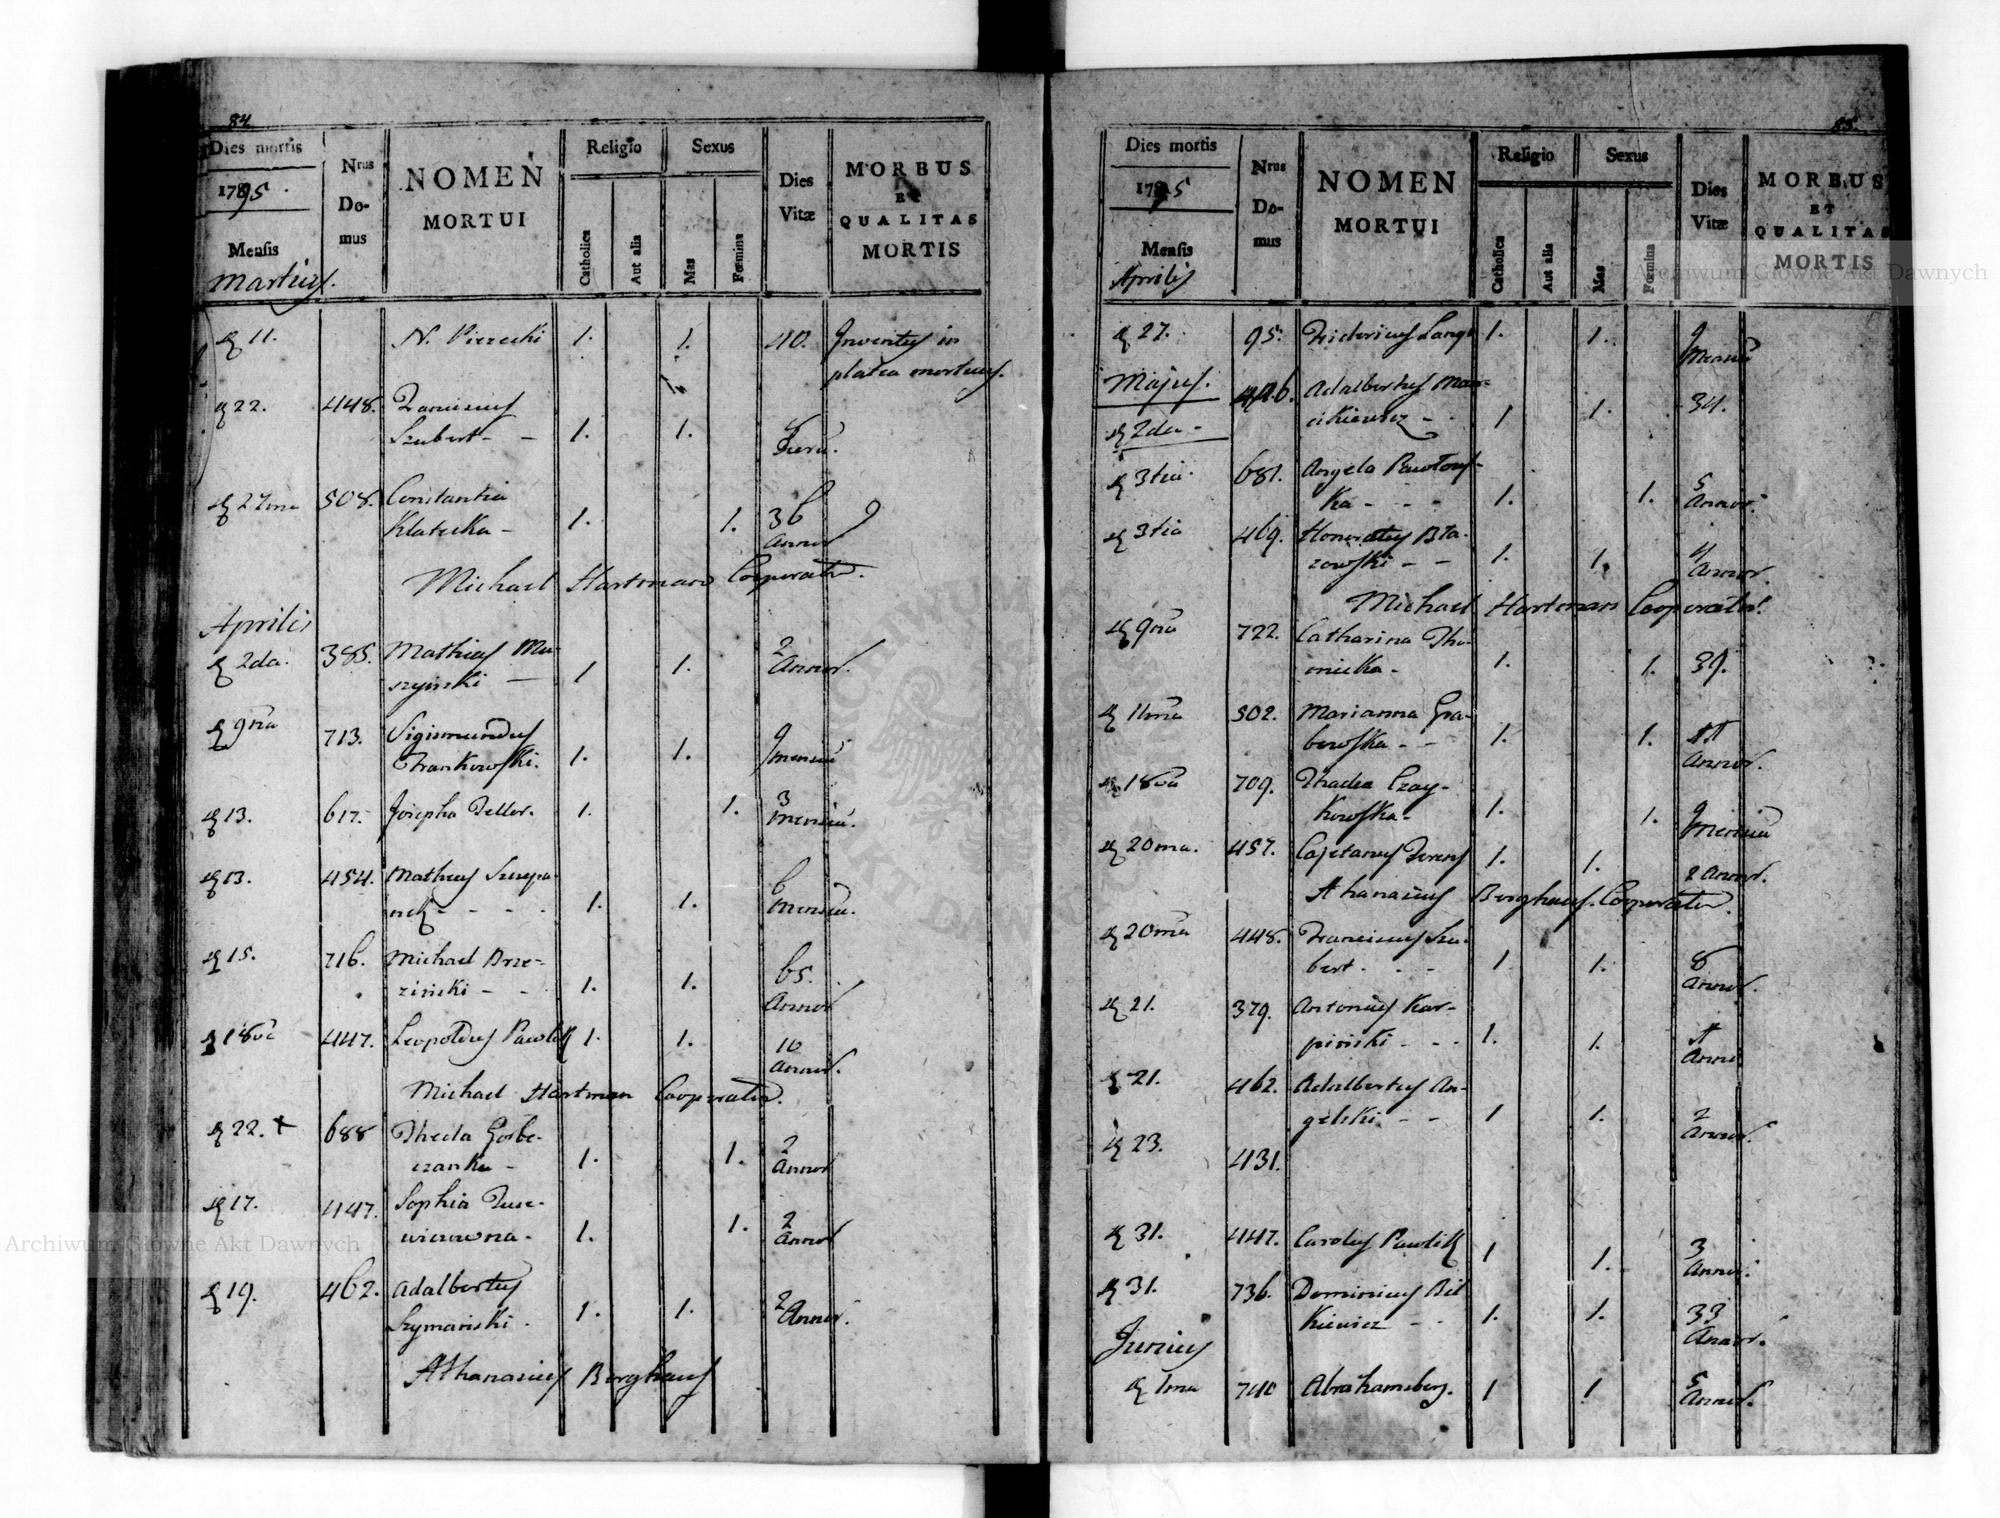 84
Dies mortis
1795.
Mensis
Martius.
Nrus Do-mus
NOMEN MORTUI
Religio
Catholica
Aut alia
Sexus
Mas
Fœmina
Dies Vitæ
MORBUS ET QUALITAS MORTIS
11. N. 1. 1. 40. Inventus in
platea mortuus.
22. 448. Franciscus
Szubert - - 1. 1.
27ma 508. Constantia
Klatecka - 1. 1. 36
Annor
Michael Hartman Cooperator.
Aprilis
2da. 385. Mathias Mu-
szyński - 1 1. 2
Annor.
9na 713. Sigismundus
Frankowski. 1. 1. 9
mensiū
13. 617. Josepha Teller. 1. 1. 3
mensiū.
13. 454. Matheus
1. 1. 6
mensiū.
15. 716. Michael Brze-
ziński - - 1. 1. 65.
Annor
18va 447. Leopoldus Pawlik 1. 1. 10
Annor.
Michael Hartman Cooperator.
22. + 688 Thecla Gorbe-
czanka - 1. 1. 2
Annor
17. 447. Sophia
1. 1. 2
Annor
19. 462. Adalbertus
Szymański. 1. 1. 2 Annor.
Athanasius Berghaus
85.
Dies mortis
1795
Mensis
Aprilis
Nrus Do-mus
NOMEN MORTUI
Religio
Catholica
Aut alia
Sexus
Mas
Fœmina
Dies Vitæ
MORBUS ET QUALITAS MORTIS
27. 95. Fridericus Lange 1. 1. 9
mensiū
Majus. Adalbertus Mar-
2da - cikiewicz - - 1 1. 34.
3tia 681. Angela Pawlows-
ka - - - 1. 1. 5
Annor.
3tia 469. Honoratus Bła-
zowski - - 1. 1. 4
Annor.
Michael Hartman Cooperator.
9na 722. Catharina Tho-
micka - 1. 1. 39.
11ma 502. Marianna Gra-
bowska - - 1. 1.
Annor.
18va 709. Thecla Czay-
kowska - 1. 1. 9
mensiū
20ma. 457. Cajetanus 1. 1. 2 Annor.
Athanasius Berghaus. Cooperator.
20ma 448. Franciscus Szu-
bert. - - 1 1. 8
Annor.
21. 379. Antonius Kar-
piński - - - 1. 1.
Anni
21. 462. Adalbertus An-
gelski - - 1 1. 2
Annor.
23. 431.
31. 447. Carolus Pawlik 1 1. 3
Annor.
31. 736. Dominicus Bil
kiewicz - - 1. 1. 33
Annor.
Junius
1ma 740 Abrahamsberg. 1 1 5
Annor.
Archiwum Główne Akt Dawnych
Archiwum Główne Akt Dawnych